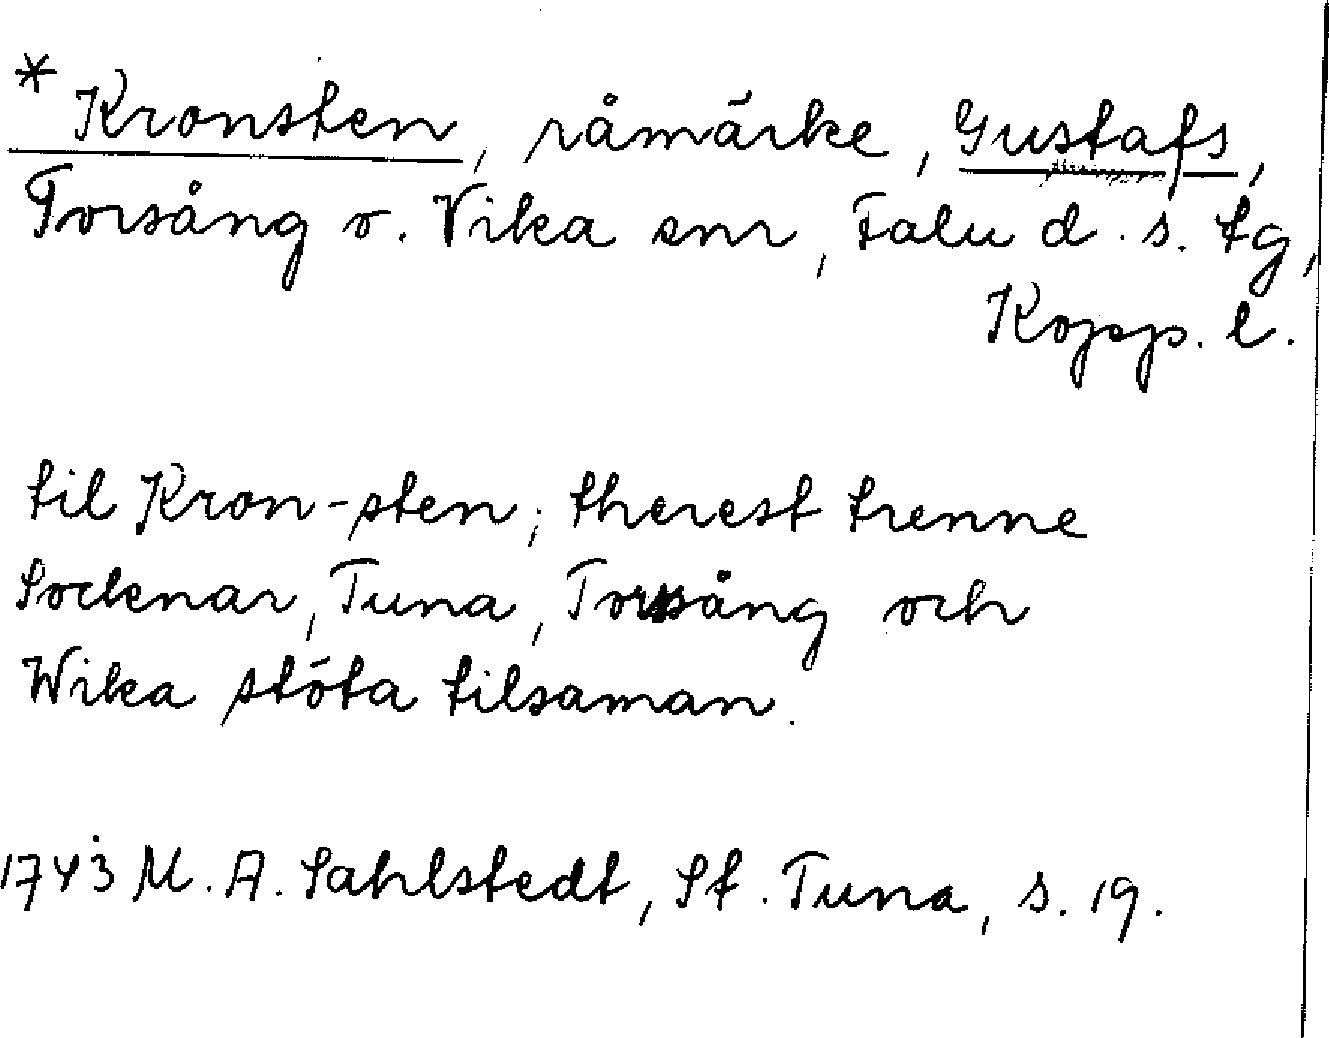 * Kronsten, råmärke, Gustafs,
Torsång o. Vika snr, Falu d. s. tg,
Kopp. l.
til Kron-sten; therest trenne
Socknar, Tuna, Torsång och
Wika stöta tilsaman.
1743 M. A. Sahlstedt, St. Tuna, s. 19.